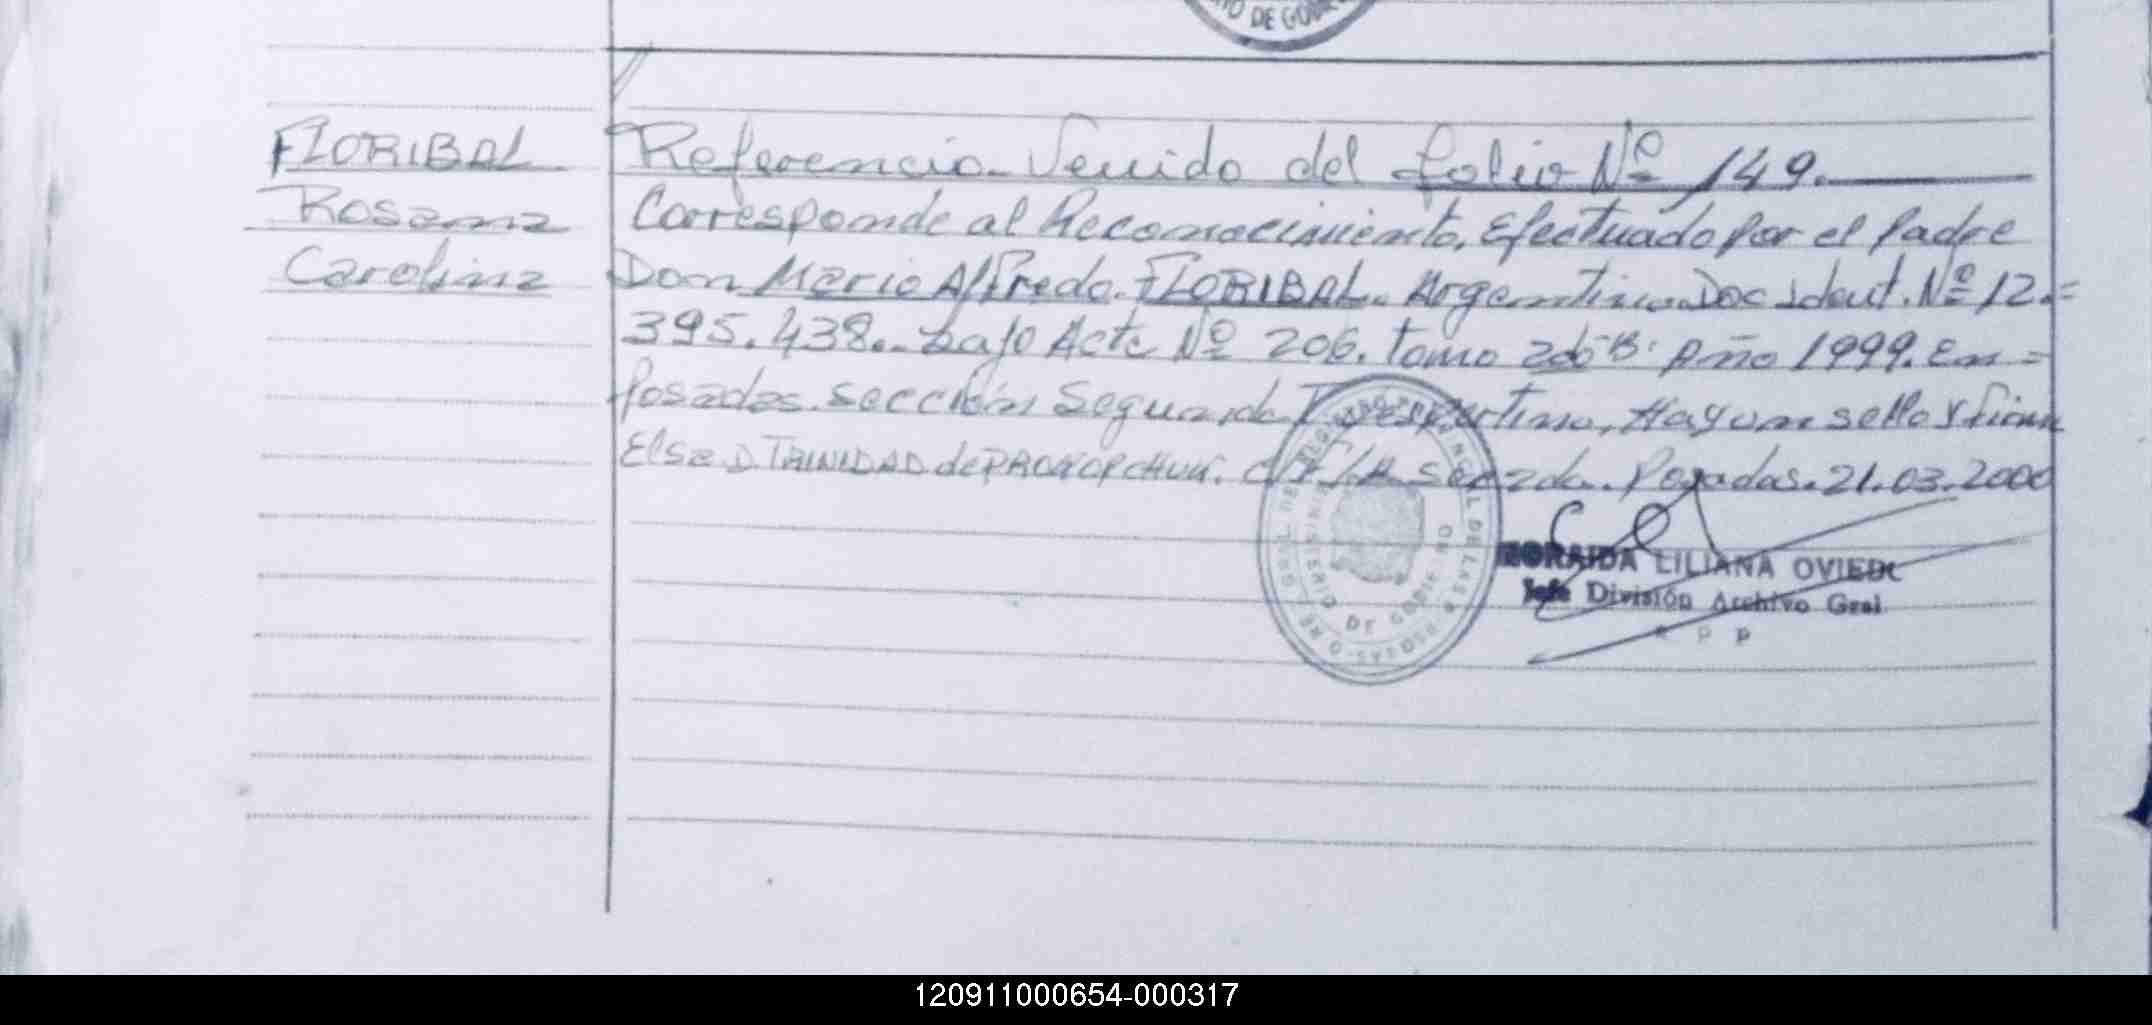 DE GOB
FLORIBAL
Rosana
Carolina
Referencia Venido del folio Nº 149.
Corresponde al Reconocimiento, Efectuado por el Padre
Don Mario Alfredo FLORIBAL. Argentino. Doc Ident. Nº 12.=
395.438.- bajo Acta Nº 206. tomo 2do "B" Año 1999. En =
Posadas. sección Segunda Vespertino, Hay un sello y firma
Elsa D TRINIDAD de PROKOPCHUK. Posadas. 21.03.2000
REGISTRO PROVINCIAL DE LAS PERSONAS
MINISTERIO DE GOBIERNO
ZORAIDA LILIANA OVIEDO
Jefe División Archivo Gral
R P P
120911000654-000317